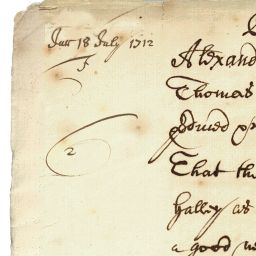 Jur 18 July 1712
2
Alexand
Thomas
That the
Galley as
a good